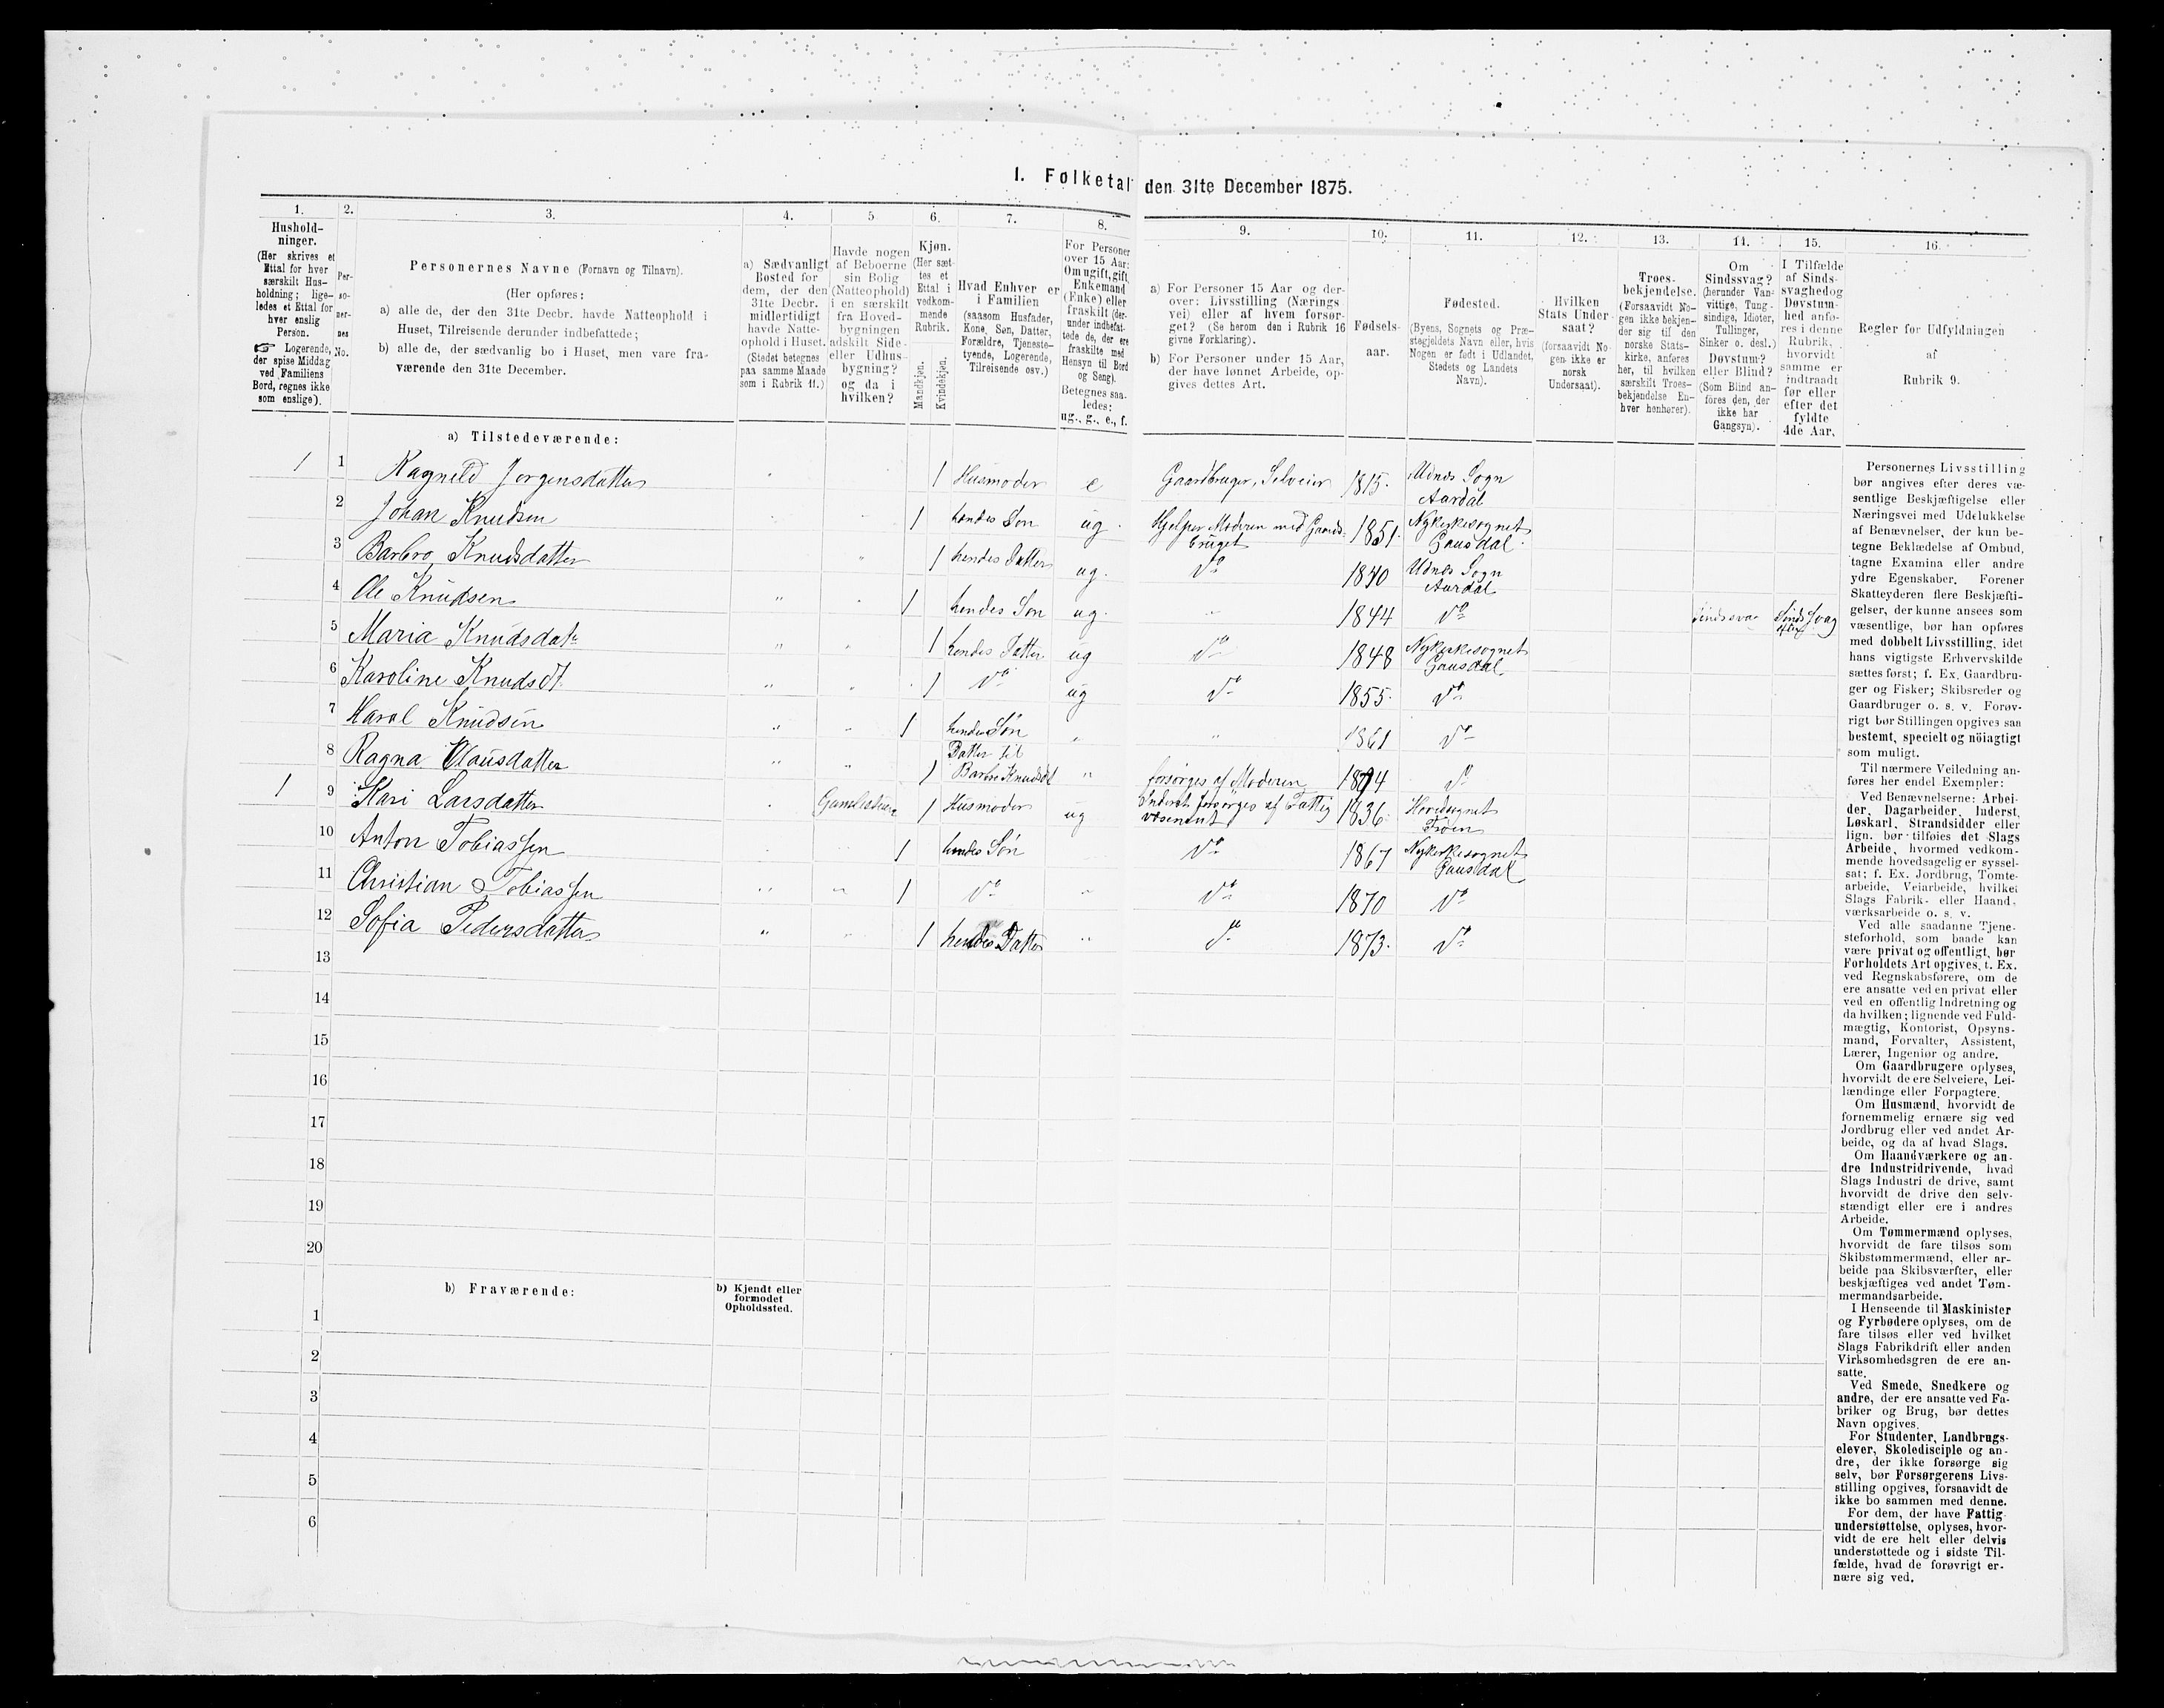 I. Folketal den 31te December 1875.
1.
2.
3.
4.
5.
6.
7.
8.
9.
10.
11.
12.
13.
14.
15.
16.
Hushold-
ninger.
(Her skrives et
Ettal for hver
særskilt Hus-
holdning; lige-
ledes et Ettal for
hver enslig
Person.
☞ Logerende,
der spise Middag
ved Familiens
Bord, regnes ikke
som enslige).
Per-
so-
ner-
nes
No.
Personernes Navne (Fornavn og Tilnavn).
(Her opføres:
a) alle de, der den 31te Decbr. havde Natteophold i
Huset, Tilreisende derunder indbefattede;
b) alle de, der sædvanlig bo i Huset, men vare fra-
værende den 31te December.
a) Sædvanligt
Bosted for
dem, der den
31te Decbr.
midlertidigt
havde Natte-
ophold i Huset.
(Stedet betegnes
paa samme Maade
som i Rubrik 11.)
Havde nogen
af Beboerne
sin Bolig
(Natteophold)
i en særskilt
fra Hoved-
bygningen
adskilt Side-
eller Udhus-
bygning?
og da i
hvilken?
Kjøn.
(Her sæt-
tes et
Ettal i
vedkom-
mende
Rubrik.
Mandkjøn.
Kvindekjøn.
Hvad Enhver er
i Familien
(saasom Husfader,
Kone, Søn, Datter,
Forældre, Tjeneste-
tyende, Logerende,
Tilreisende osv.)
For Personer
over 15 Aar:
Om ugift, gift,
Enkemand
(Enke) eller
fraskilt (der-
under indbefat-
tede de, der ere
fraskilte med
Hensyn til Bord
og Seng).
Betegnes saa-
ledes:
ug., g., e., f.
a) For Personer 15 Aar og der-
over: Livsstilling (Nærings
vei) eller af hvem forsør-
get? (Se herom den i Rubrik 16
givne Forklaring).
b) For Personer under 15 Aar,
der have lønnet Arbeide, op-
gives dettes Art.
Fødsels-
aar.
Fødested.
(Byens, Sognets og Præ-
stegjeldets Navn eller, hvis
Nogen er født i Udlandet,
Stedets og Landets
Navn).
Hvilken
Stats Under
saat?
(forsaavidt No-
gen ikke er
norsk
Undersaat).
Troes-
bekjendelse.
(Forsaavidt No-
gen ikke bekjen-
der sig til den
norske Stats-
kirke, anføres
her, til hvilken
særskilt Troes-
bekjendelse En-
hver henhører).
Om
Sindssvag?
(herunder Van-
vittige, Tung-
sindige, Idioter,
Tullinger,
Sinker o. desl.)
Døvstum?
eller Blind?
(Som Blind an-
føres den, der
ikke har
Gangsyn).
I Tilfælde
af Sinds-
svaghed og
Døvstum-
hed anfø-
res i denne
Rubrik,
hvorvidt
samme er
indtraadt
før eller
efter det
fyldte
4de Aar.
Regler for Udfyldningen
af
Rubrik 9.
a) Tilstedeværende:
1 1 Ragnild Jorgensdatter 1 Husmoder e Gaardbruger, Selveier 1815. Udnes Sogn
Aurdal
2 Johan Knudsen 1 hendes Søn ug. Hjelper Moderen med Gaards-
bruget 1851. Nykirkesognet
Gausdal
3 Barbro Knudsdatter 1 hendes Datter ug. Do 1840 Udnes Sogn
Aurdal
4 Ole Knudsen " 1 hendes Søn ug. " 1844 Do
5 Maria Knudsdatr " " 1 hendes Datter ug Do 1848 Nykirkesognet
Gausdal
6 Karoline Knudsdt. " " 1 Do ug Do 1855. Do
7 Haral Knudsen " " 1 hendes Søn " " 1861 Do
8 Ragna Clausdatter " " 1 Datter til
Barbro Knudsdt " forsørges af Moderen 1874 Do
1 9 Kari Larsdatter 1 Husmoder ug Inderst forsørges af Fattig
væsenet 1836.
10 Anton Tobiassen 1 hendes Søn Do 1867 Nykirkesognet
Gausdal
11 Christian Tobiassen " " 1 Do " Do 1870 Do
12 Sofia Pedersdatter " " 1 hendes Datter " Do 1873. Do
13
14
15
16
17
18
19
20
b) Fraværende:
b) Kjendt eller
formodet
Opholdssted.
1
2
3
4
5
6
Personernes Livsstilling
bør angives efter deres væ-
sentlige Beskjæftigelse eller
Næringsvei med Udelukkelse
af Benævnelser, der kun be-
tegne Beklædelse af Ombud,
tagne Examina eller andre
ydre Egenskaber. Forener
Skatteyderen flere Beskjæfti-
gelser, der kunne ansees som
væsentlige, bør han opføres
med dobbelt Livsstilling, idet
hans vigtigste Erhvervskilde
sættes først; f. Ex. Gaardbru-
ger og Fisker; Skibsreder og
Gaardbruger o. s. v. Forøv-
rigt bør Stillingen opgives saa
bestemt, specielt og nöiagtigt
som muligt.
Til nærmere Veiledning an-
føres her endel Exempler:
Ved Benævnelserne: Arbei-
der, Dagarbeider, Inderst,
Løskarl, Strandsidder eller
lign. bør tilføies det Slags
Arbeide, hvormed vedkom-
mende hovedsagelig er syssel-
sat; f. Ex. Jordbrug, Tomte-
arbeide, Veiarbeide, hvilket
Slags Fabrik- eller Haand-
værksarbeide o. s. v.
Ved alle saadanne Tjene-
steforhold, som baade kan
være privat og offentligt, bør
Forholdets Art opgives, f. Ex.
ved Regnskabsførere, om de
ere ansatte ved en privat eller
ved en offentlig Indretning og
da hvilken; lignende ved Fuld-
mægtig, Kontorist, Opsyns-
mand, Forvalter, Assistent,
Lærer, Ingeniør og andre.
Om Gaardbrugere oplyses,
hvorvidt de ere Selveiere, Lei-
lændinge eller Forpagtere.
Om Husmænd, hvorvidt de
fornemmelig ernære sig ved
Jordbrug eller ved andet Ar-
beide, og da af hvad Slags.
Om Haandværkere og an-
dre Industridrivende, hvad
Slags Industri de drive, samt
hvorvidt de drive den selv-
stændigt eller ere i andres
Arbeide.
Om Tømmermænd oplyses,
hvorvidt de fare tilsøs som
Skibstømmermænd, eller ar-
beide paa Skibsværfter, eller
beskjæftiges ved andet Tøm-
mermandsarbeide.
I Henseende til Maskinister
og Fyrbødere oplyses, om de
fare tilsøs eller ved hvilket
Slags Fabrikdrift eller anden
Virksomhedsgren de ere an-
satte.
Ved Smede, Snedkere og
andre, der ere ansatte ved Fa-
briker og Brug, bør dettes
Navn opgives.
For Studenter, Landbrugs-
elever, Skoledisciple og an-
dre, der ikke forsørge sig
selv, bør Forsørgerens Livs-
stilling opgives, forsaavidt de
ikke bo sammen med denne.
For dem, der have Fattig-
understøttelse, oplyses, hvor-
vidt de ere helt eller delvis
understøttede og i sidste Til-
fælde, hvad de forøvrigt er-
nære sig ved.